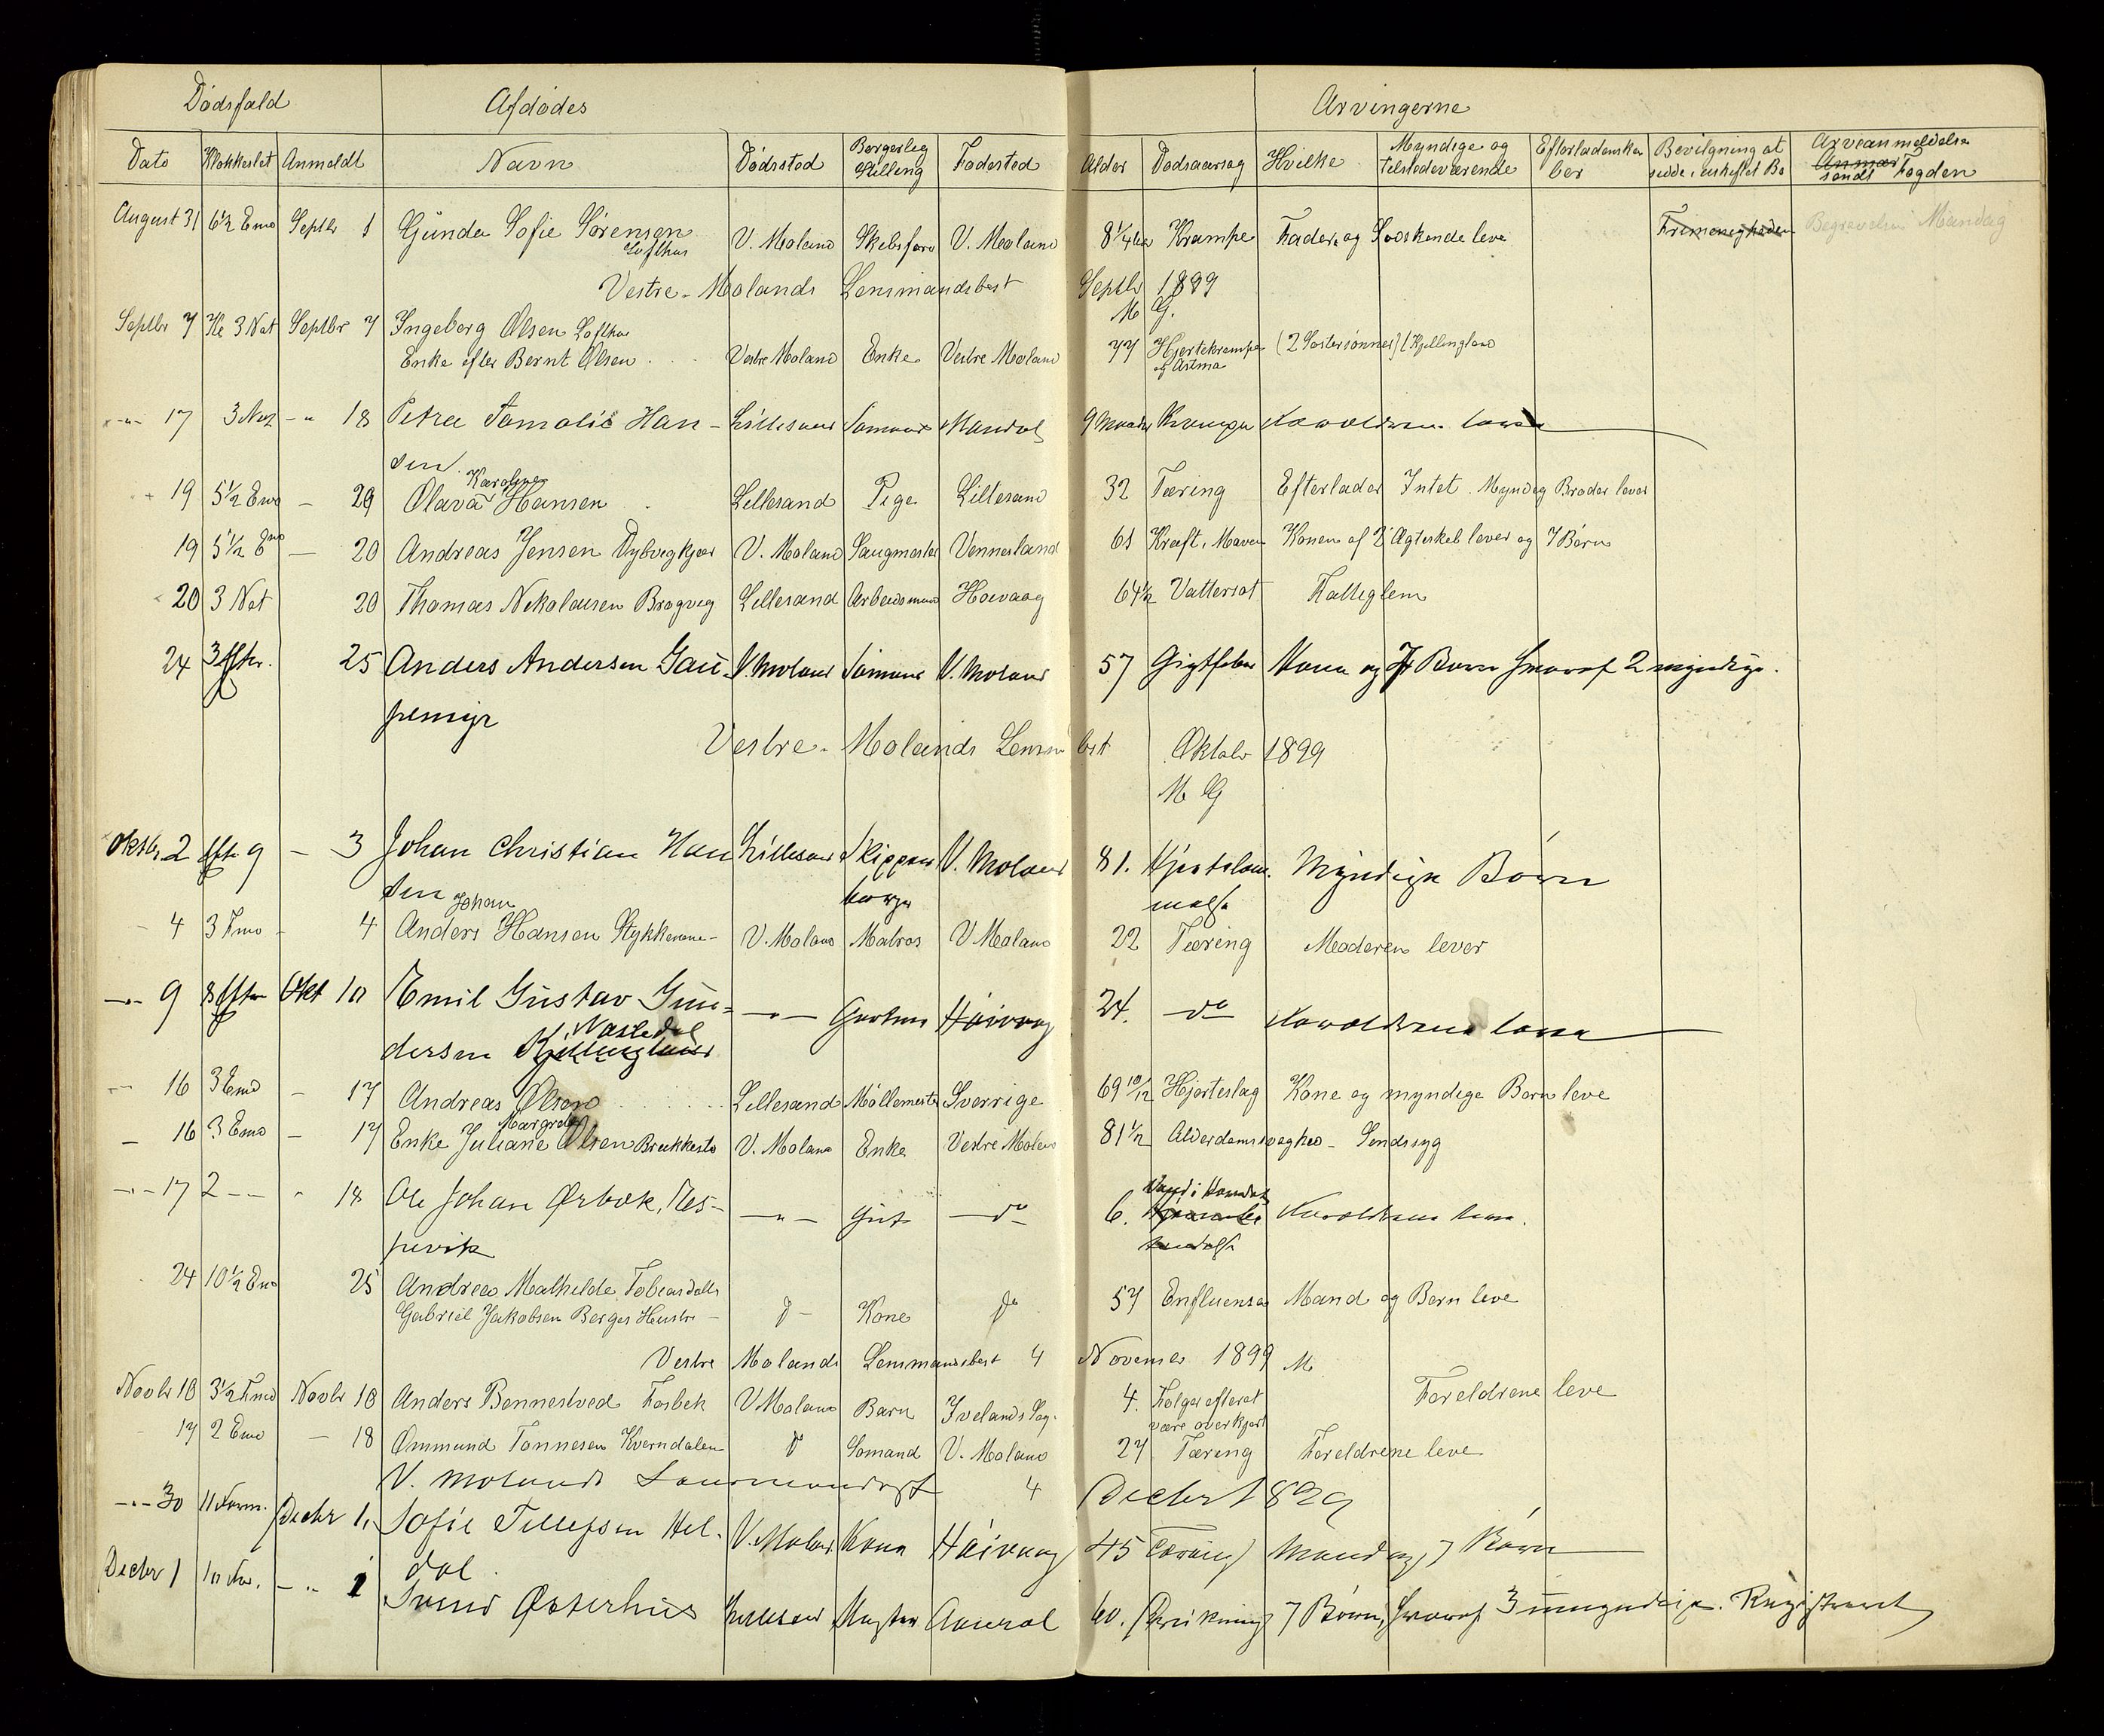 Dødsfald Afdødes Arvingerne
Dato Klokkeslet Anmeldt Navn Dødssted Borgerlig Stilling Fødested Alder Dødsaarsag Hvilke Myndige og tilstedeværende Efterladenskaber Bevilgning at sidde i uskiftet Bo Arveanmeldelse sendt Fogden
August 31 6½ Emd Septbr 1 Gunda Sofie Sørensen V. Moland V. Moland 8¼ Krampe Fader og Søskende leve Begravelse Mandag
Lofthus
Vestre-Molands Lensmandsbest Septbr 1899
M G.
Septbr 7 Kl 3 Nat Septbr 7 Ingeborg Olsen Lofthus
Enke efter Bernt Olsen Vestre Moland Enke Vestre Moland 77 Hjertekrampe (2 Søstersønner) Kjellingland
og Astma
17 3 - " 18 Petra Tomalie Han- Lillesand Mandal 9 Maaneder Krampe Forældrene leve
sen
19 5½ Emd - 29 Olava Karoline Hansen Lillesand Pige Lillesand 32 Tæring Efterlader Intet. Myndig Broder lever
19 5½ Emd - 20 Andreas Jensen Dybvigkjær V. Moland Saugmester Vennesland 61 Kræft i Maven Konen af 2 Ægteskab lever og 7 Børn
20 3 Nat 20 Thomas Nikolaisen Brogvig Lillesand Arbeidsmand Høivaag 64½ Vattersot Fattiglem
24 3 Eftr. 25 Anders Andersen Gau- V. Moland Sømand V. Moland 57 Gigtfeber Kone og Børn hvoraf 2 myndige.
pemyr
Vestre-Molands Lensm best Oktobr 1899
M G
Oktbr. 2 Eftr 9 - 3 Johan Christian Han Lillesand Skipper V. Moland 81. Hjertelam- Myndige Børn
sen borger melse
4 3 Fmd 4 Anders Johan Hansen Stykkene- V. Moland Matros V. Moland 22 Tæring Moderen lever
-"- 9 8 Eftr Okt 10 Emil Gustav Gun- -"- Høivaag 24. do Forældrene leve
dersen Kjellingland Vastedal
16 3 Emd - 17 Andreas Olsen Lillesand Møllemester Sverrige 69 10/12 Hjerteslag Kone og myndige Børn leve
16 3 Emd - 17 Enke Juliane Margrete Olsen Brækkestø V. Moland Enke Vestre Moland 81½ Alderdomssvaghed - Sindssyg
-"- 17 2 -- " 18 Ole Johan Ørbæk, Jes- -"- Gut do 6. Vand i Hovedet Forældrene leve.
pervik
24 10½ Emd 25 Andrea Mathilde Tobiasdatter
Gabriel Jakobsen Berges Hustru do Kone do 57 Enfluensa Mand og Børn leve
Vestre Molands Lensmandsbest 4 November 1899 M
Novbr 10 3½ Fmd Novbr 10 Anders Bennestved Fosbek V. Moland Barn Ivelands Sogn 4. Følger efter at Foreldrene leve
være overkjørt
17 2 Emd - 18 Ommund Tønnesen Kverndalen do Sømand V. Moland 27 Tæring Foreldrene leve
V. Molands Lensmandsbest 4 Decbr 1899
-"- 30 11 Form. Decbr 1. Sofie Tellefsen Hel- V. Moland Kone Høivaag 45 Tæring Mand og 7 Børn
dal.
Decbr 1 10 -"- 1 Svend Østerhus Lillesand Aaseral 60. 7 Børn, hvoraf 3 umyndige. Registreret